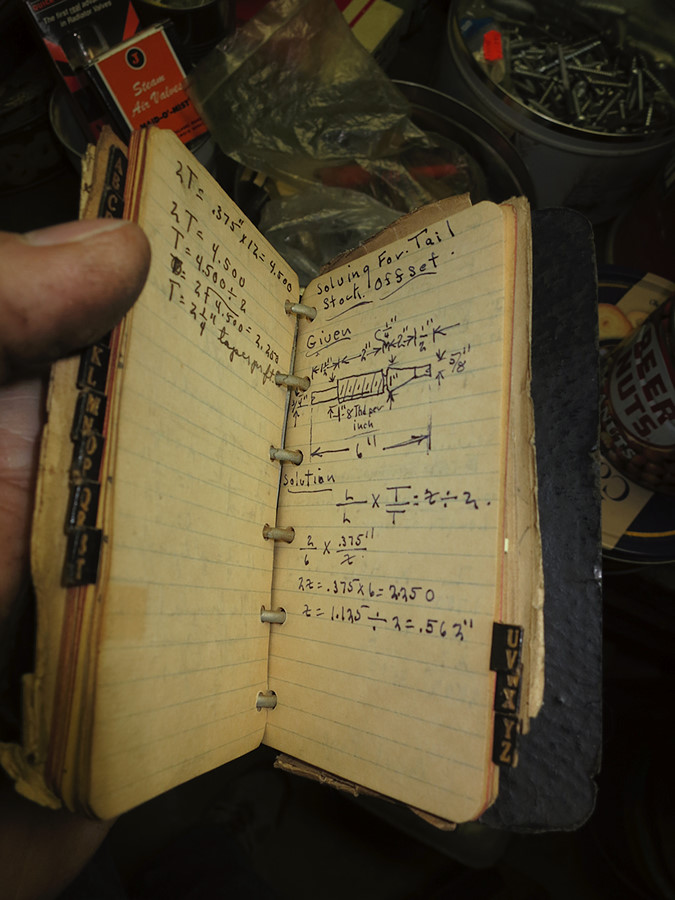 The first real advance
in Radiator Valves
Steam
Air Valves
2T = .375" x 12 = 4.500
2T = 4.500
T = 4.500 ÷ 2
= 2 ) 4.500 = 2.250
T = 2 1/4" taper per ft
Solving For Tail
Stock Offset.
Given
1 1/2" 2" 1/4" 2" 1/2"
5/8"
3/4"
1" 8 Thd per
inch
6"
Solution
L/L x T/T = z ÷ 2.
2/6 x .375"/z
2z = .375 x 6 = 2.250
z = 1.125 ÷ 2 = .562"
A
B
C
K
L
M
N
O
P
Q
R
S
T
U
V
W
X
Y
Z
BEER
NUTS